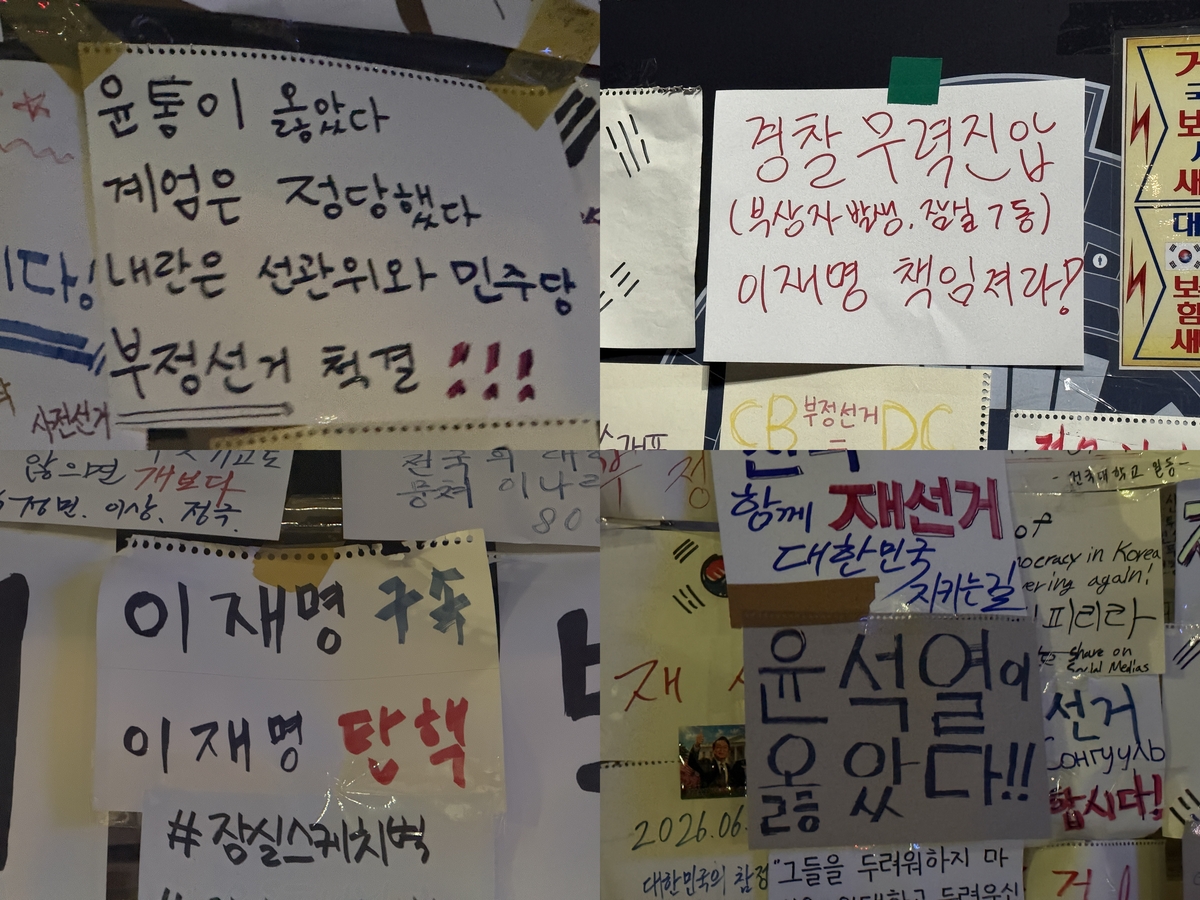 윤통이 옳았다
계엄은 정당했다
내란은 선관위와 민주당
부정선거 척결 !!!
사전선거
이다!
경찰 무력진압
(부상자 발생. 잠실 7동)
이재명 책임져라!
CB 부정선거 = DC
거
국
보
시
새
대
보
힘
새
않으면 개보다
정면. 이상. 정국.
전국의 대
뭉쳐 이나라
80
이재명 구속
이재명 탄핵
#잠실스케치벅
함께 재선거
대한민국
지키는길
- 건국대학교 월동 -
of
ocracy in Korea
ering again!
피리라
share on
Social Medias
재
윤석열이
옳았다!!
선거
Сонгууль
합시다!
2026.06.
대한민국의 참정
"그들을 두려워하지 마